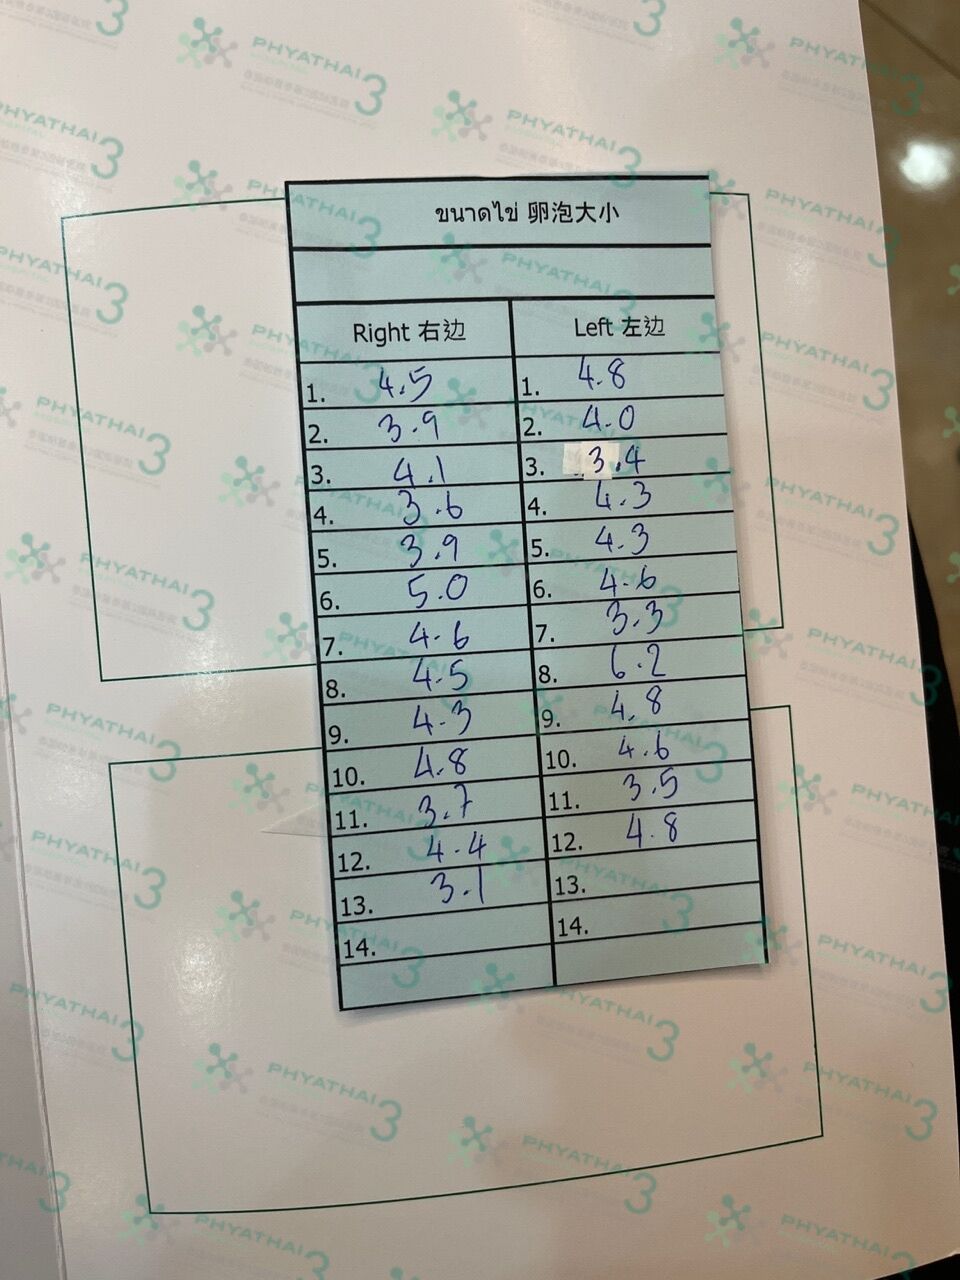 ขนาดไข่ 卵泡大小
Right 右边 Left 左边
1. 4.5 1. 4.8
2. 3.9 2. 4.0
3. 4.1 3. 3.4
4. 3.6 4. 4.3
5. 3.9 5. 4.3
6. 5.0 6. 4.6
7. 4.6 7. 3.3
8. 4.5 8. 6.2
9. 4.3 9. 4.8
10. 4.8 10. 4.6
11. 3.7 11. 3.5
12. 4.4 12. 4.8
13. 3.1 13.
14. 14.
PHYATHAI 3